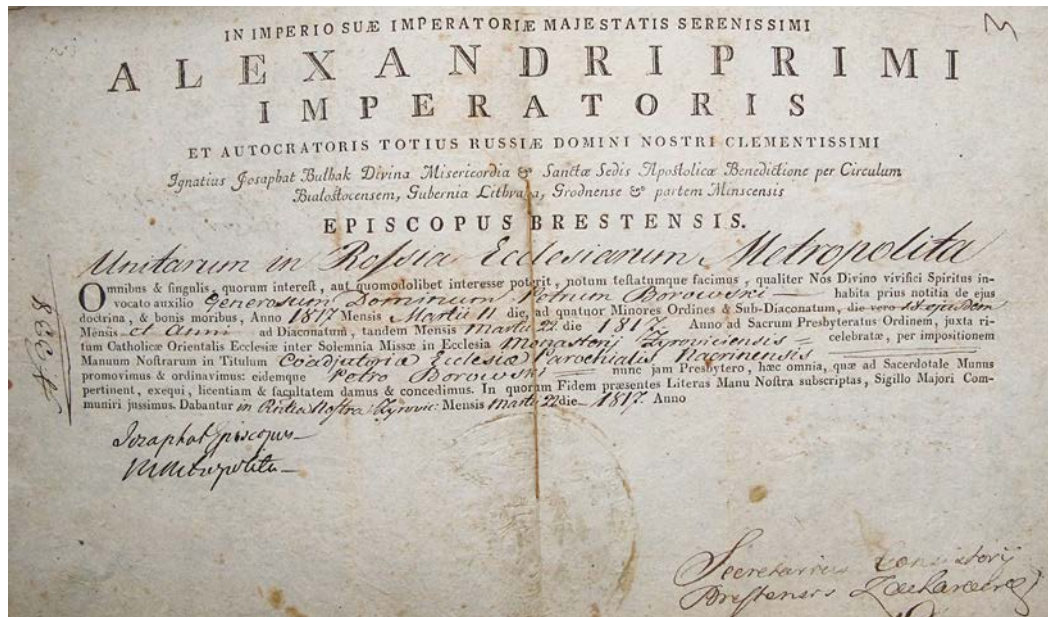 3
IN IMPERIO SUÆ IMPERATORIÆ MAJESTATIS SERENISSIMI
ALEXANDRI PRIMI
IMPERATORIS
ET AUTOCRATORIS TOTIUS RUSSIÆ DOMINI NOSTRI CLEMENTISSIMI
Ignatius Josaphat Bulhak Divina Misericordia & Sanctæ Sedis Apostolicæ Benedictione per Circulum
Bialostocensem, Gubernia Lithvana, Grodnense & partem Minscensis
EPISCOPUS BRESTENSIS.
Unitarum in Rossia Ecclesiarum Metropolita
Omnibus & singulis, quorum interest, aut quomodolibet interesse poterit, notum testatumque facimus, qualiter Nos Divino vivifici Spiritus in-
vocato auxilio Generosum Dominum Petrum Borowski habita prius notitia de ejus
doctrina, & bonis moribus, Anno 1817 Mensis Martii 11 die, ad quatuor Minores Ordines & Sub-Diaconatum, die vero 18 ejusdem
Mensis et Anni ad Diaconatum, tandem Mensis Martii 22 die 1817 Anno ad Sacrum Presbyteratus Ordinem, juxta ri-
tum Catholicæ Orientalis Ecclesiæ inter Solemnia Missæ in Ecclesia Monasterij Zyroviciensis celebratæ, per impositionem
Manuum Nostrarum in Titulum Coadjutoriæ Ecclesiæ Parochialis
promovimus & ordinavimus: eidemque Petro Borowski nunc jam Presbytero, hæc omnia, quæ ad Sacerdotale Munus
pertinent, exequi, licentiam & facultatem damus & concedimus. In quorum Fidem præsentes Literas Manu Nostra subscriptas, Sigillo Majori Com-
muniri jussimus. Dabantur in Nostra Zyrovic: Mensis Martii 22 die 1817 Anno
Jozaphat Episcopus
Metropolita
N. 338
Secretarius Consistorij
Brestensis